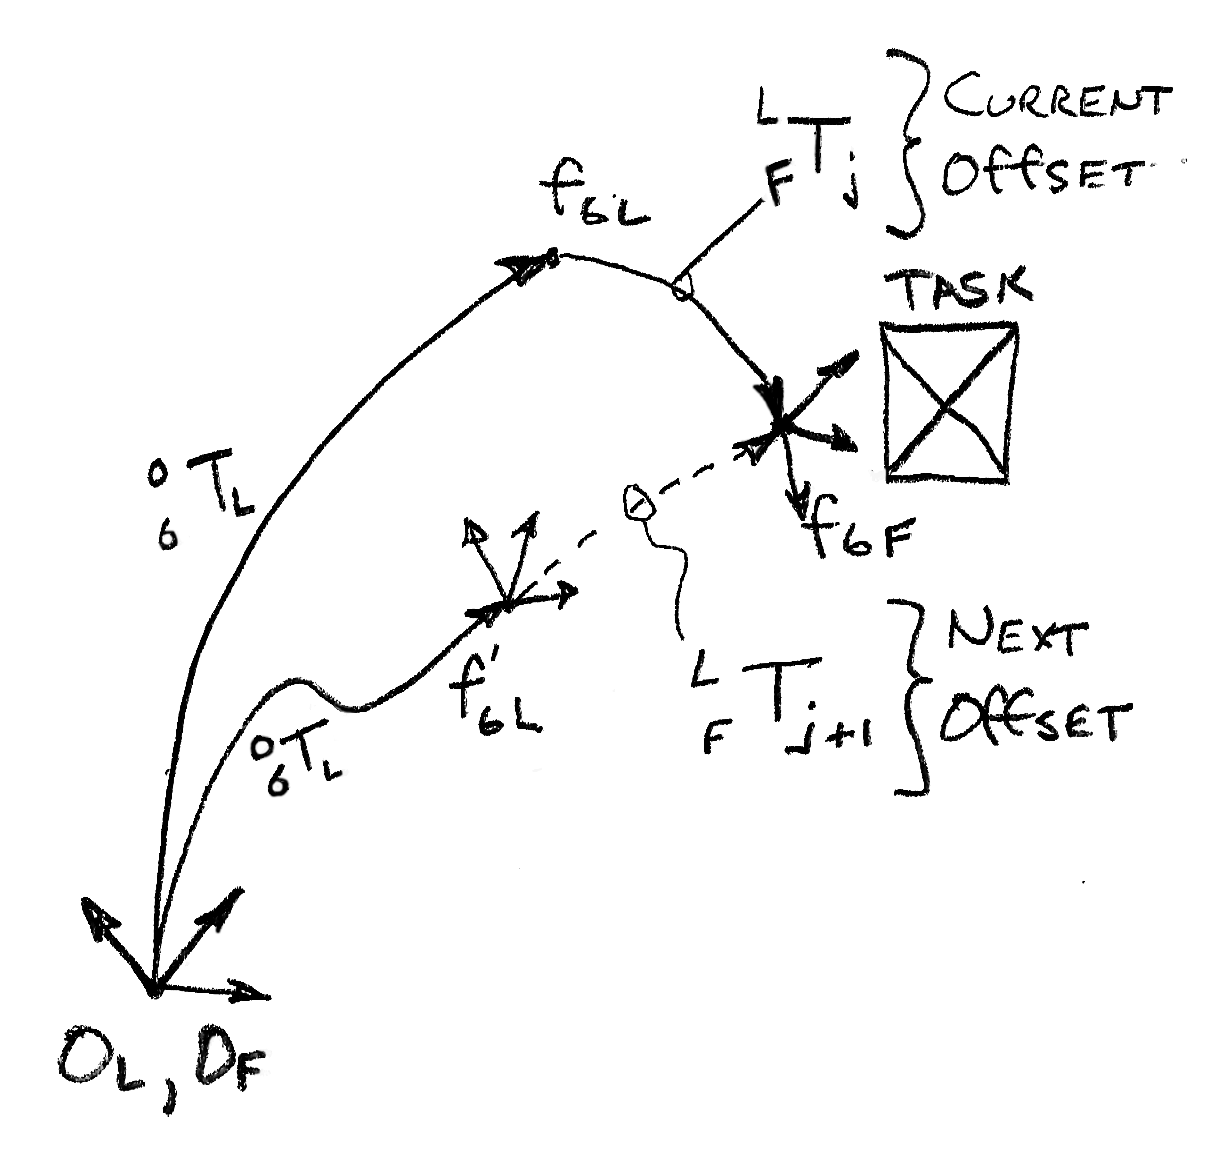 L
F T j } CURRENT
OffSET
f6L
TASK
0
6 T L
f6F
f'6L
L
F T j+1 } NEXT
OffSET
0
6 T L
OL, DF